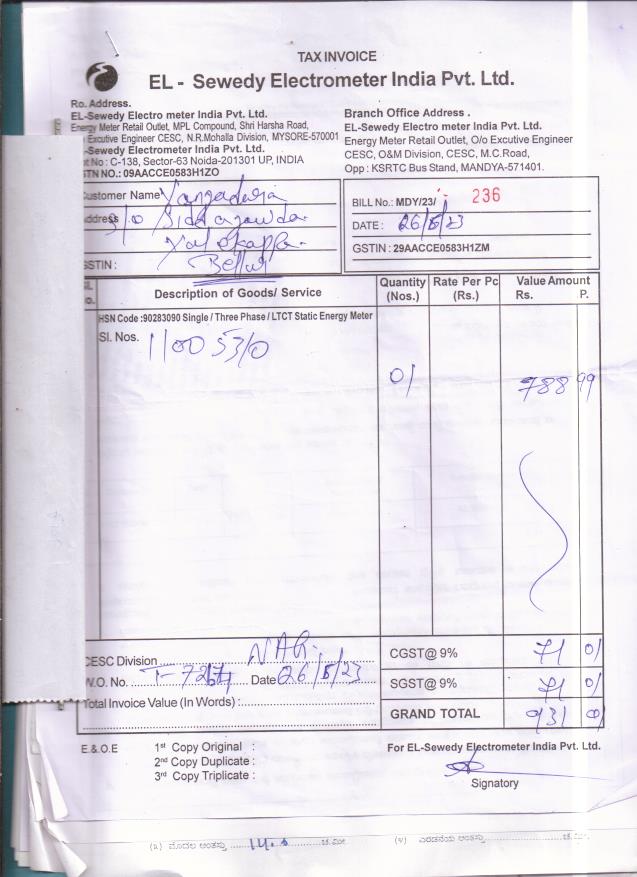 TAX INVOICE
EL - Sewedy Electrometer India Pvt. Ltd.
Ro. Address.
EL-Sewedy Electro meter India Pvt. Ltd.
Energy Meter Retail Outlet, MPL Compound, Shri Harsha Road,
Excutive Engineer CESC, N.R.Mohalla Division, MYSORE-570001
-Sewedy Electrometer India Pvt. Ltd.
No : C-138, Sector-63 Noida-201301 UP, INDIA
STN NO.: 09AACCE0583H1ZO
Branch Office Address .
EL-Sewedy Electro meter India Pvt. Ltd.
Energy Meter Retail Outlet, O/o Excutive Engineer
CESC, O&M Division, CESC, M.C.Road,
Opp : KSRTC Bus Stand, MANDYA-571401.
Customer Name
Address S/o
GSTIN : Bellur
BILL No.: MDY/23/ 236
DATE : 26/5/23
GSTIN : 29AACCE0583H1ZM
Description of Goods/ Service
Quantity (Nos.)
Rate Per Pc (Rs.)
Value Amount Rs. P.
HSN Code :90283090 Single / Three Phase / LTCT Static Energy Meter
Sl. Nos. 1100 5310
01 788 99
CESC Division NAR.
W.O. No. Date 26/5/23
Total Invoice Value (In Words) :
CGST@ 9% 71 01
SGST@ 9% 71 01
GRAND TOTAL 931 01
E.& O.E
1st Copy Original :
2nd Copy Duplicate :
3rd Copy Triplicate :
For EL-Sewedy Electrometer India Pvt. Ltd.
Signatory
(೩) ಮೊದಲ ಅಂತಸ್ತು ಚ.ಮೀ. (೪) ಎರಡನೆಯ ಅಂತಸ್ತು ಚ.ಮೀ.